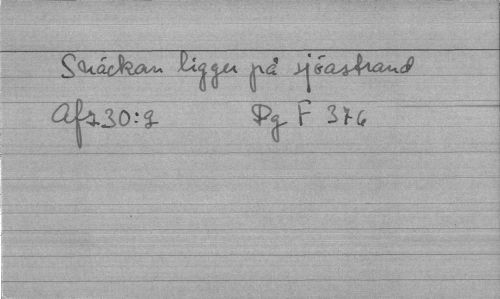 Snäckan ligger på sjöastrand
Af 730:2 Dg F 376